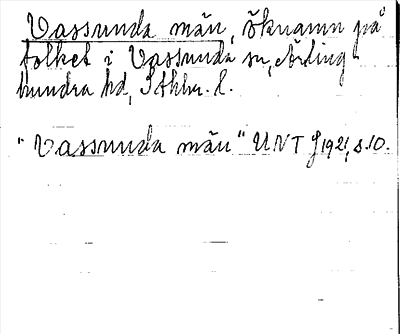 Vassunda män, öknamn på
folket i Vassunda sn, Ärling-
hundra hd, Sthlm. l.
"Vassunda män" UNT J 1921, s. 10.